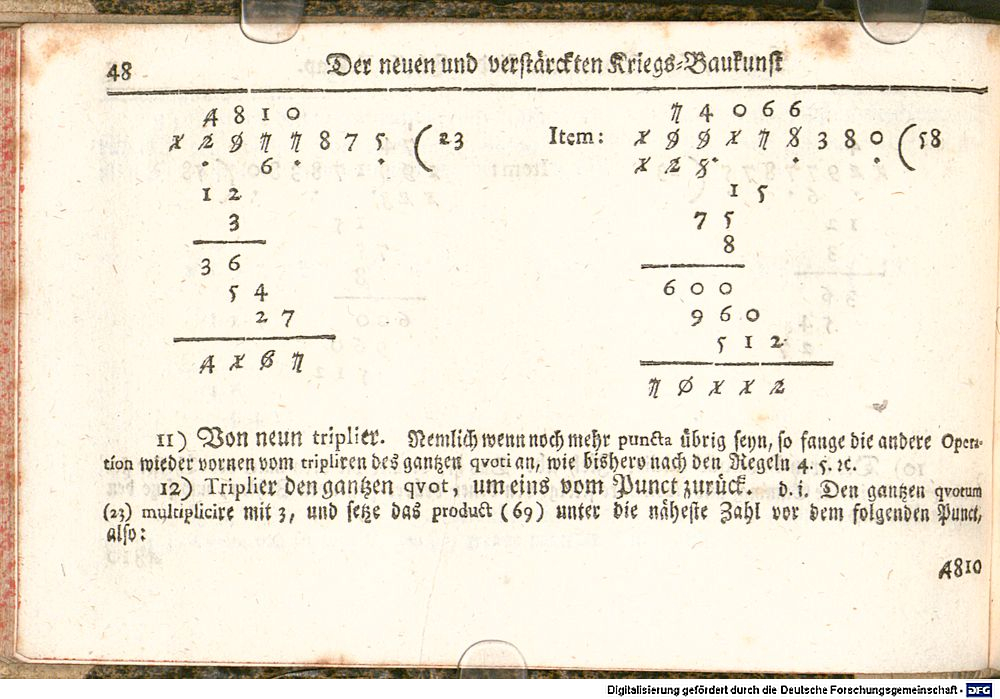 48 Der neuen und verstärckten Kriegs-Baukunst
4 8 1 0
1 2 9 7 7 8 7 5 ( 23
6
1 2
3
3 6
5 4
2 7
4 1 6 7
Item:
7 4 0 6 6
1 9 9 1 7 8 3 8 0 ( 58
1 2 5
1 5
7 5
8
6 0 0
9 6 0
5 1 2
7 0 1 1 2
11) Von neun triplier. Nemlich wenn noch mehr puncta übrig seyn, so fange die andere Opera-
tion wieder vornen vom tripliren des gantzen qvoti an, wie bishero nach den Regeln 4. 5. ꝛc.
12) Triplier den gantzen qvot, um eins vom Punct zurück. d. i. Den gantzen qvotum
(23) multiplicire mit 3, und setze das product (69) unter die näheste Zahl vor dem folgenden Punct,
also:
4810
Digitalisierung gefördert durch die Deutsche Forschungsgemeinschaft - DFG